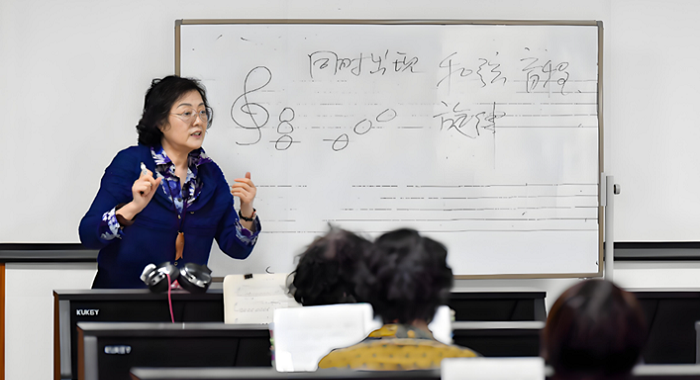 同时出现 和弦 音程
旋律
KUKEY
KUKEY